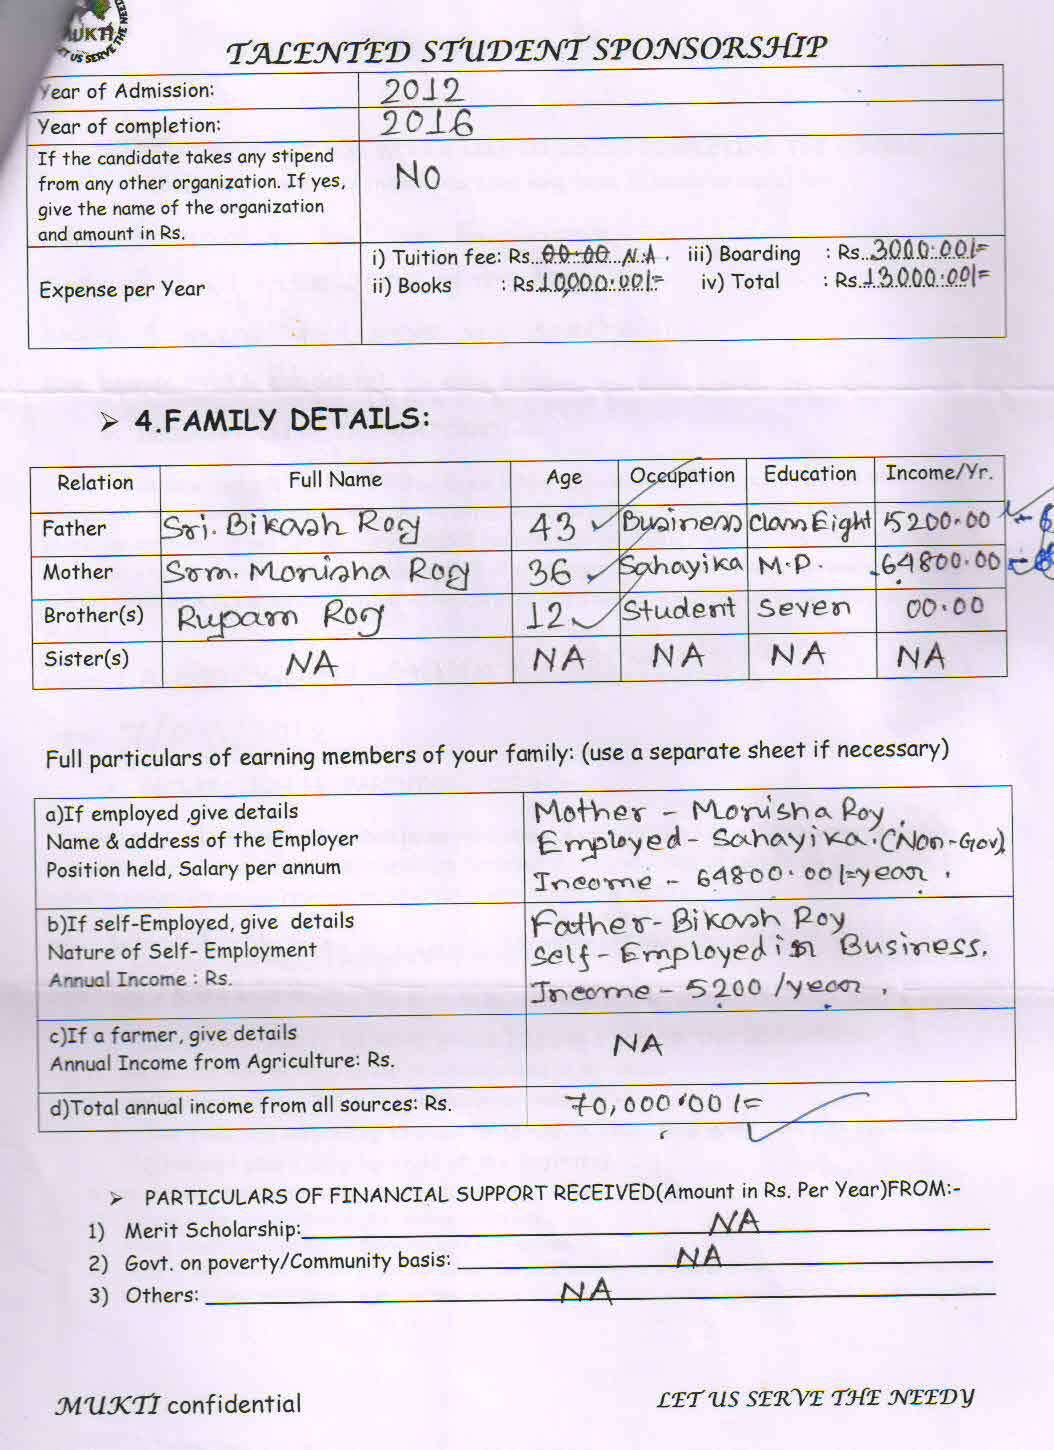 MUKTI
LET US SERVE THE NEEDY
TALENTED STUDENT SPONSORSHIP
Year of Admission: 2012
Year of completion: 2016
If the candidate takes any stipend
from any other organization. If yes, NO
give the name of the organization
and amount in Rs.
Expense per Year
i) Tuition fee: Rs..00.00 N.A. iii) Boarding : Rs..3000.00/=
ii) Books : Rs.10,000.00/= iv) Total : Rs.13000.00/=
➢ 4.FAMILY DETAILS:
Relation Full Name Age Occupation Education Income/Yr.
Father Sri. Bikash Roy 43 Business Class Eight 5200.00
Mother Srm. Monisha Roy 36 Sahayika M.P. 64800.00
Brother(s) Rupam Roy 12 Student Seven 00.00
Sister(s) NA NA NA NA NA
Full particulars of earning members of your family: (use a separate sheet if necessary)
a)If employed ,give details Mother - Monisha Roy,
Name & address of the Employer Employed - Sahayika. (Non-Gov).
Position held, Salary per annum Income - 64800.00/=year.
b)If self-Employed, give details Father - Bikash Roy
Nature of Self- Employment Self - Employed in Business.
Annual Income : Rs. Income - 5200 /year.
c)If a farmer, give details NA
Annual Income from Agriculture: Rs.
d)Total annual income from all sources: Rs. 70,000.00/=
➢ PARTICULARS OF FINANCIAL SUPPORT RECEIVED(Amount in Rs. Per Year)FROM:-
1) Merit Scholarship: NA
2) Govt. on poverty/Community basis: NA
3) Others: NA
MUKTI confidential LET US SERVE THE NEEDY